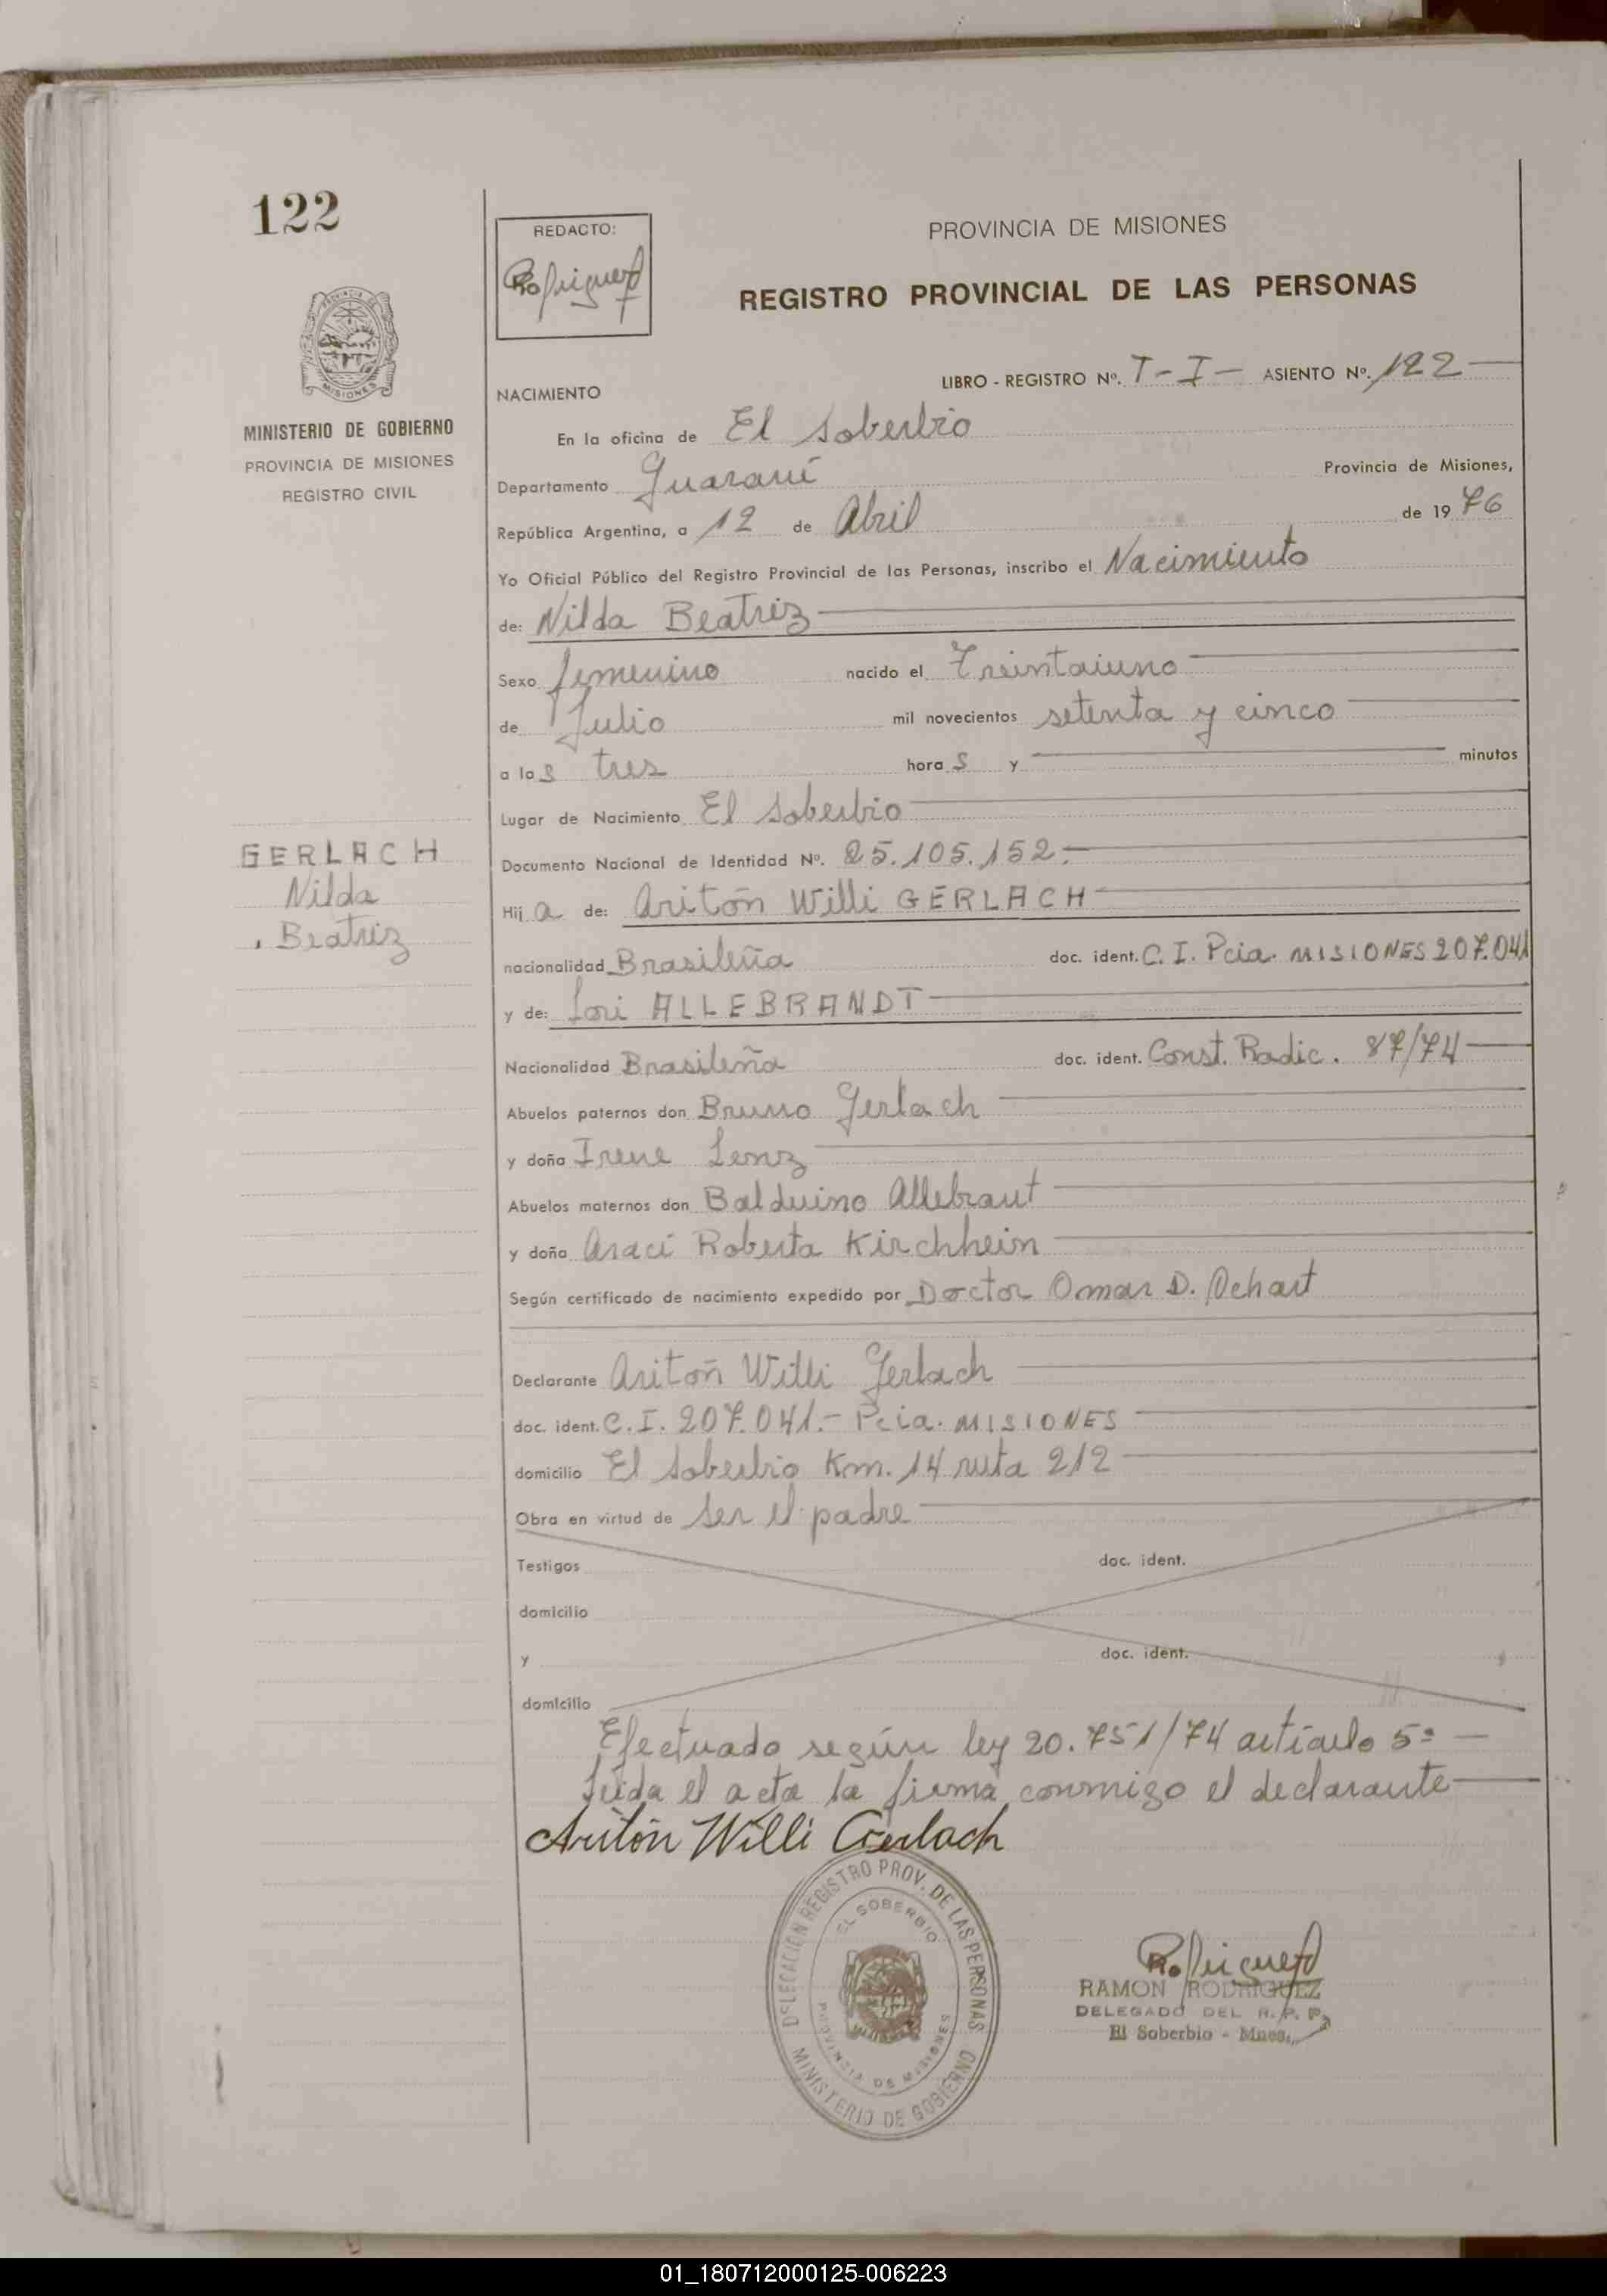 122
MINISTERIO DE GOBIERNO
PROVINCIA DE MISIONES
REGISTRO CIVIL
GERLACH
Nilda
Beatriz
REDACTO:
PROVINCIA DE MISIONES
REGISTRO PROVINCIAL DE LAS PERSONAS
LIBRO - REGISTRO Nº. T-I- ASIENTO Nº. 122
NACIMIENTO
En la oficina de El Soberbio
Departamento Guaraní Provincia de Misiones,
República Argentina, a 12 de Abril de 1976
Yo Oficial Público del Registro Provincial de las Personas, inscribo el Nacimiento
de: Nilda Beatriz
Sexo femenino nacido el Treintaiuno
de Julio mil novecientos setenta y cinco
a las tres horas y minutos
Lugar de Nacimiento El Soberbio
Documento Nacional de Identidad Nº. 25.105.152.-
Hija de: Aritón Willi GERLACH
nacionalidad Brasileña doc. ident. C. I. Pcia. MISIONES 207.041
y de: Lori ALLEBRANDT
Nacionalidad Brasileña doc. ident. Const. Radic. 87/74
Abuelos paternos don Bruno Gerlach
y doña Irene Lenz
Abuelos maternos don Balduino Allebraut
y doña Araci Roberta Kirchheim
Según certificado de nacimiento expedido por Doctor Omar D.
Declarante Aritón Willi Gerlach
doc. ident. C. I. 207.041.- Pcia. MISIONES
domicilio El Soberbio Km. 14 ruta 212
Obra en virtud de ser el padre
Testigos doc. ident.
domicilio
y doc. ident.
domicilio
Efectuado según ley 20.751/74 artículo 5º
leida el acta la firma conmigo el declarante
Aritón Willi Gerlach
DELEGACION REGISTRO PROV. DE LAS PERSONAS
EL SOBERBIO
PROVINCIA DE MISIONES
MINISTERIO DE GOBIERNO
RAMON RODRIGUEZ
DELEGADO DEL R. P. P.
El Soberbio - Mnes.
01_180712000125-006223